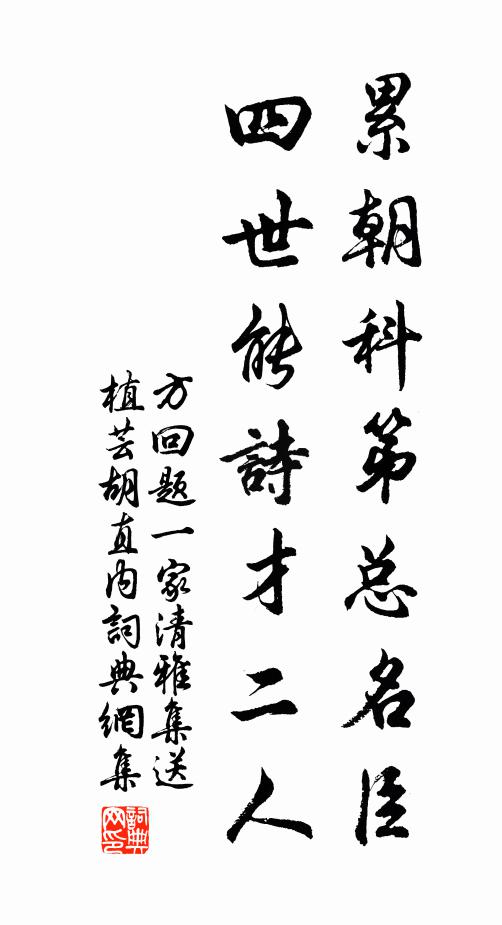 累朝科第总名臣
四世能詩才二人
方回题一家清雅集送
植芸胡直内詞典網集
詞典网印